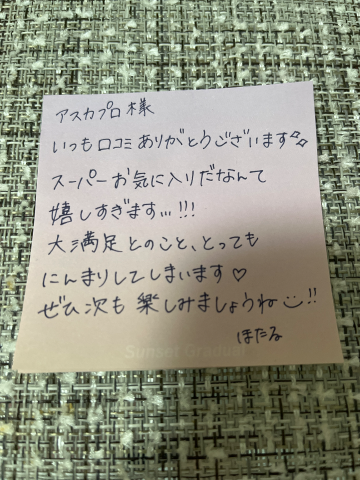 アスカプロ様
いつも口コミありがとうございます✨
スーパーお気に入りだなんて
嬉しすぎます...!!!
大満足とのこと、とっても
にんまりしてしまいます♡
ぜひ次も楽しみましょうね☺!!
ほたる
Sunset Gradual